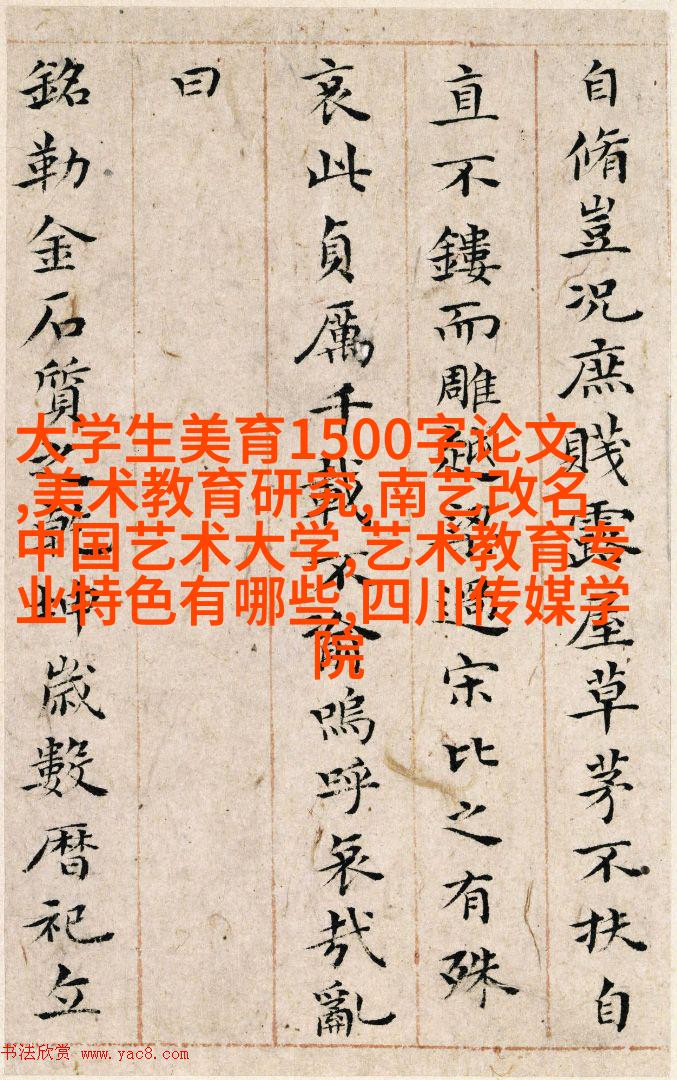 自脩豈況庶賤露屋草茅不扶自
直不鏤而雕越梁過宋比之有殊
哀此貞厲千載不渝嗚呼哀哉亂
曰
銘勒金石質之乾坤歲數暦祀立
大学生美育1500字论文
,美术教育研究,南艺改名
中国艺术大学,艺术教育专
业特色有哪些,四川传媒学
院
书法欣赏 www.yac8.com